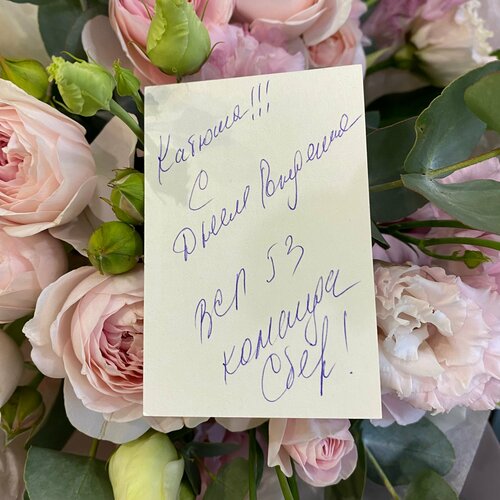 Катюша!!!
С
Днем Рождения
ВСП 53
команда
Сбер!